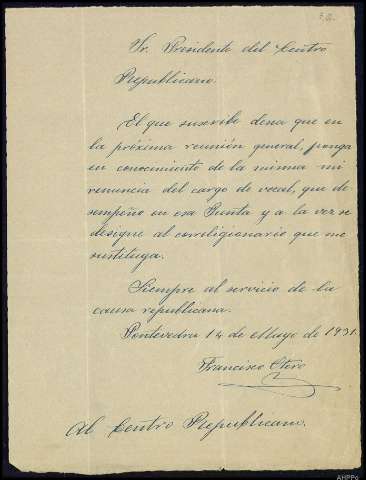 Sr. Presidente del Centro
Republicano.
El que suscribe desea que en
la próxima reunión general, ponga
en conocimiento de la misma mi
renuncia del cargo de vocal, que de-
sempeño en esa Junta y a la vez se
designe al correligionario que me
sustituya.
Siempre al servicio de la
causa republicana.
Pontevedra 14 de Mayo de 1931.
Francisco Otero
Al Centro Republicano.
AHPPo